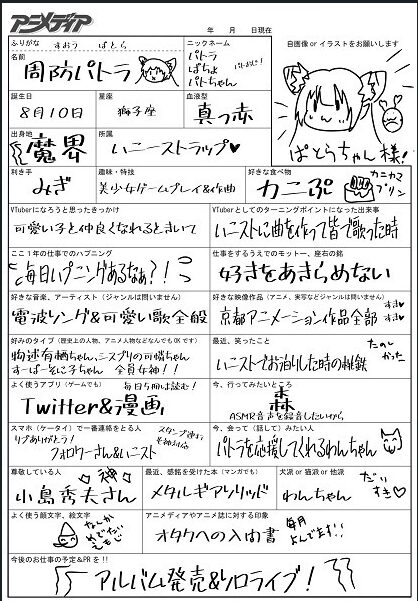 アニメディア
年 月 日現在
ふりがな すおう ぱとら
名前 周防パトラ
ニックネーム
パトラ
ぱちょ
パトちゃん
自画像 or イラストをお願いします
ぱとらちゃん様!
誕生日 8月10日
星座 獅子座
血液型 真っ赤
出身地 魔界
所属 ハニーストラップ♥
利き手 みぎ
趣味・特技 美少女ゲームプレイ&作曲
好きな食べ物 カニぷ
カニカマプリン
VTuberになろうと思ったきっかけ
可愛い子と仲良くなれるときいて
VTuberとしてのターニングポイントになった出来事
ハニストに曲を作って皆で歌った時
ここ1年の仕事でのハプニング
毎日ハプニングあるなぁ?!!
仕事をするうえでのモットー、座右の銘
好きをあきらめない
好きな音楽、アーティスト(ジャンルは問いません)
電波ソング&可愛い歌全般
好きな映像作品(アニメ、実写などジャンルは問いません)
京都アニメーション作品全部
すき♥
すき♥
好みのタイプ(歴史上の人物、アニメ人物などなんでもOKです)
物述有栖ちゃん、ニスプリの可憐ちゃん
すーぱーそに子ちゃん 全員女神!!
最近、笑ったこと
ハニストでお泊りした時の桃鉄
たのしかった
よく使うアプリ(ゲームでも)
毎日5冊は読む!
Twitter&漫画
今、行ってみたいところ
森
ASMR音声を録音したいから
スマホ(ケータイ)で一番連絡をとる人
リプありがとう!
フォロワーさん&ハニスト
今、会って(話して)みたい人
パトラを応援してくれるわんちゃん
尊敬している人
小島秀夫さん
神
最近、感銘を受けた本(マンガでも)
メタルギアソリッド
犬派 or 猫派 or 他派
わんちゃん
だいすき♡
よく使う顔文字、絵文字
なんかめでたいえもじ
アニメディアやアニメ誌に対する印象
オタクへの入門書
毎月よんでます!!
今後のお仕事の予定&PRを!!
アルバム発売&ソロライブ!